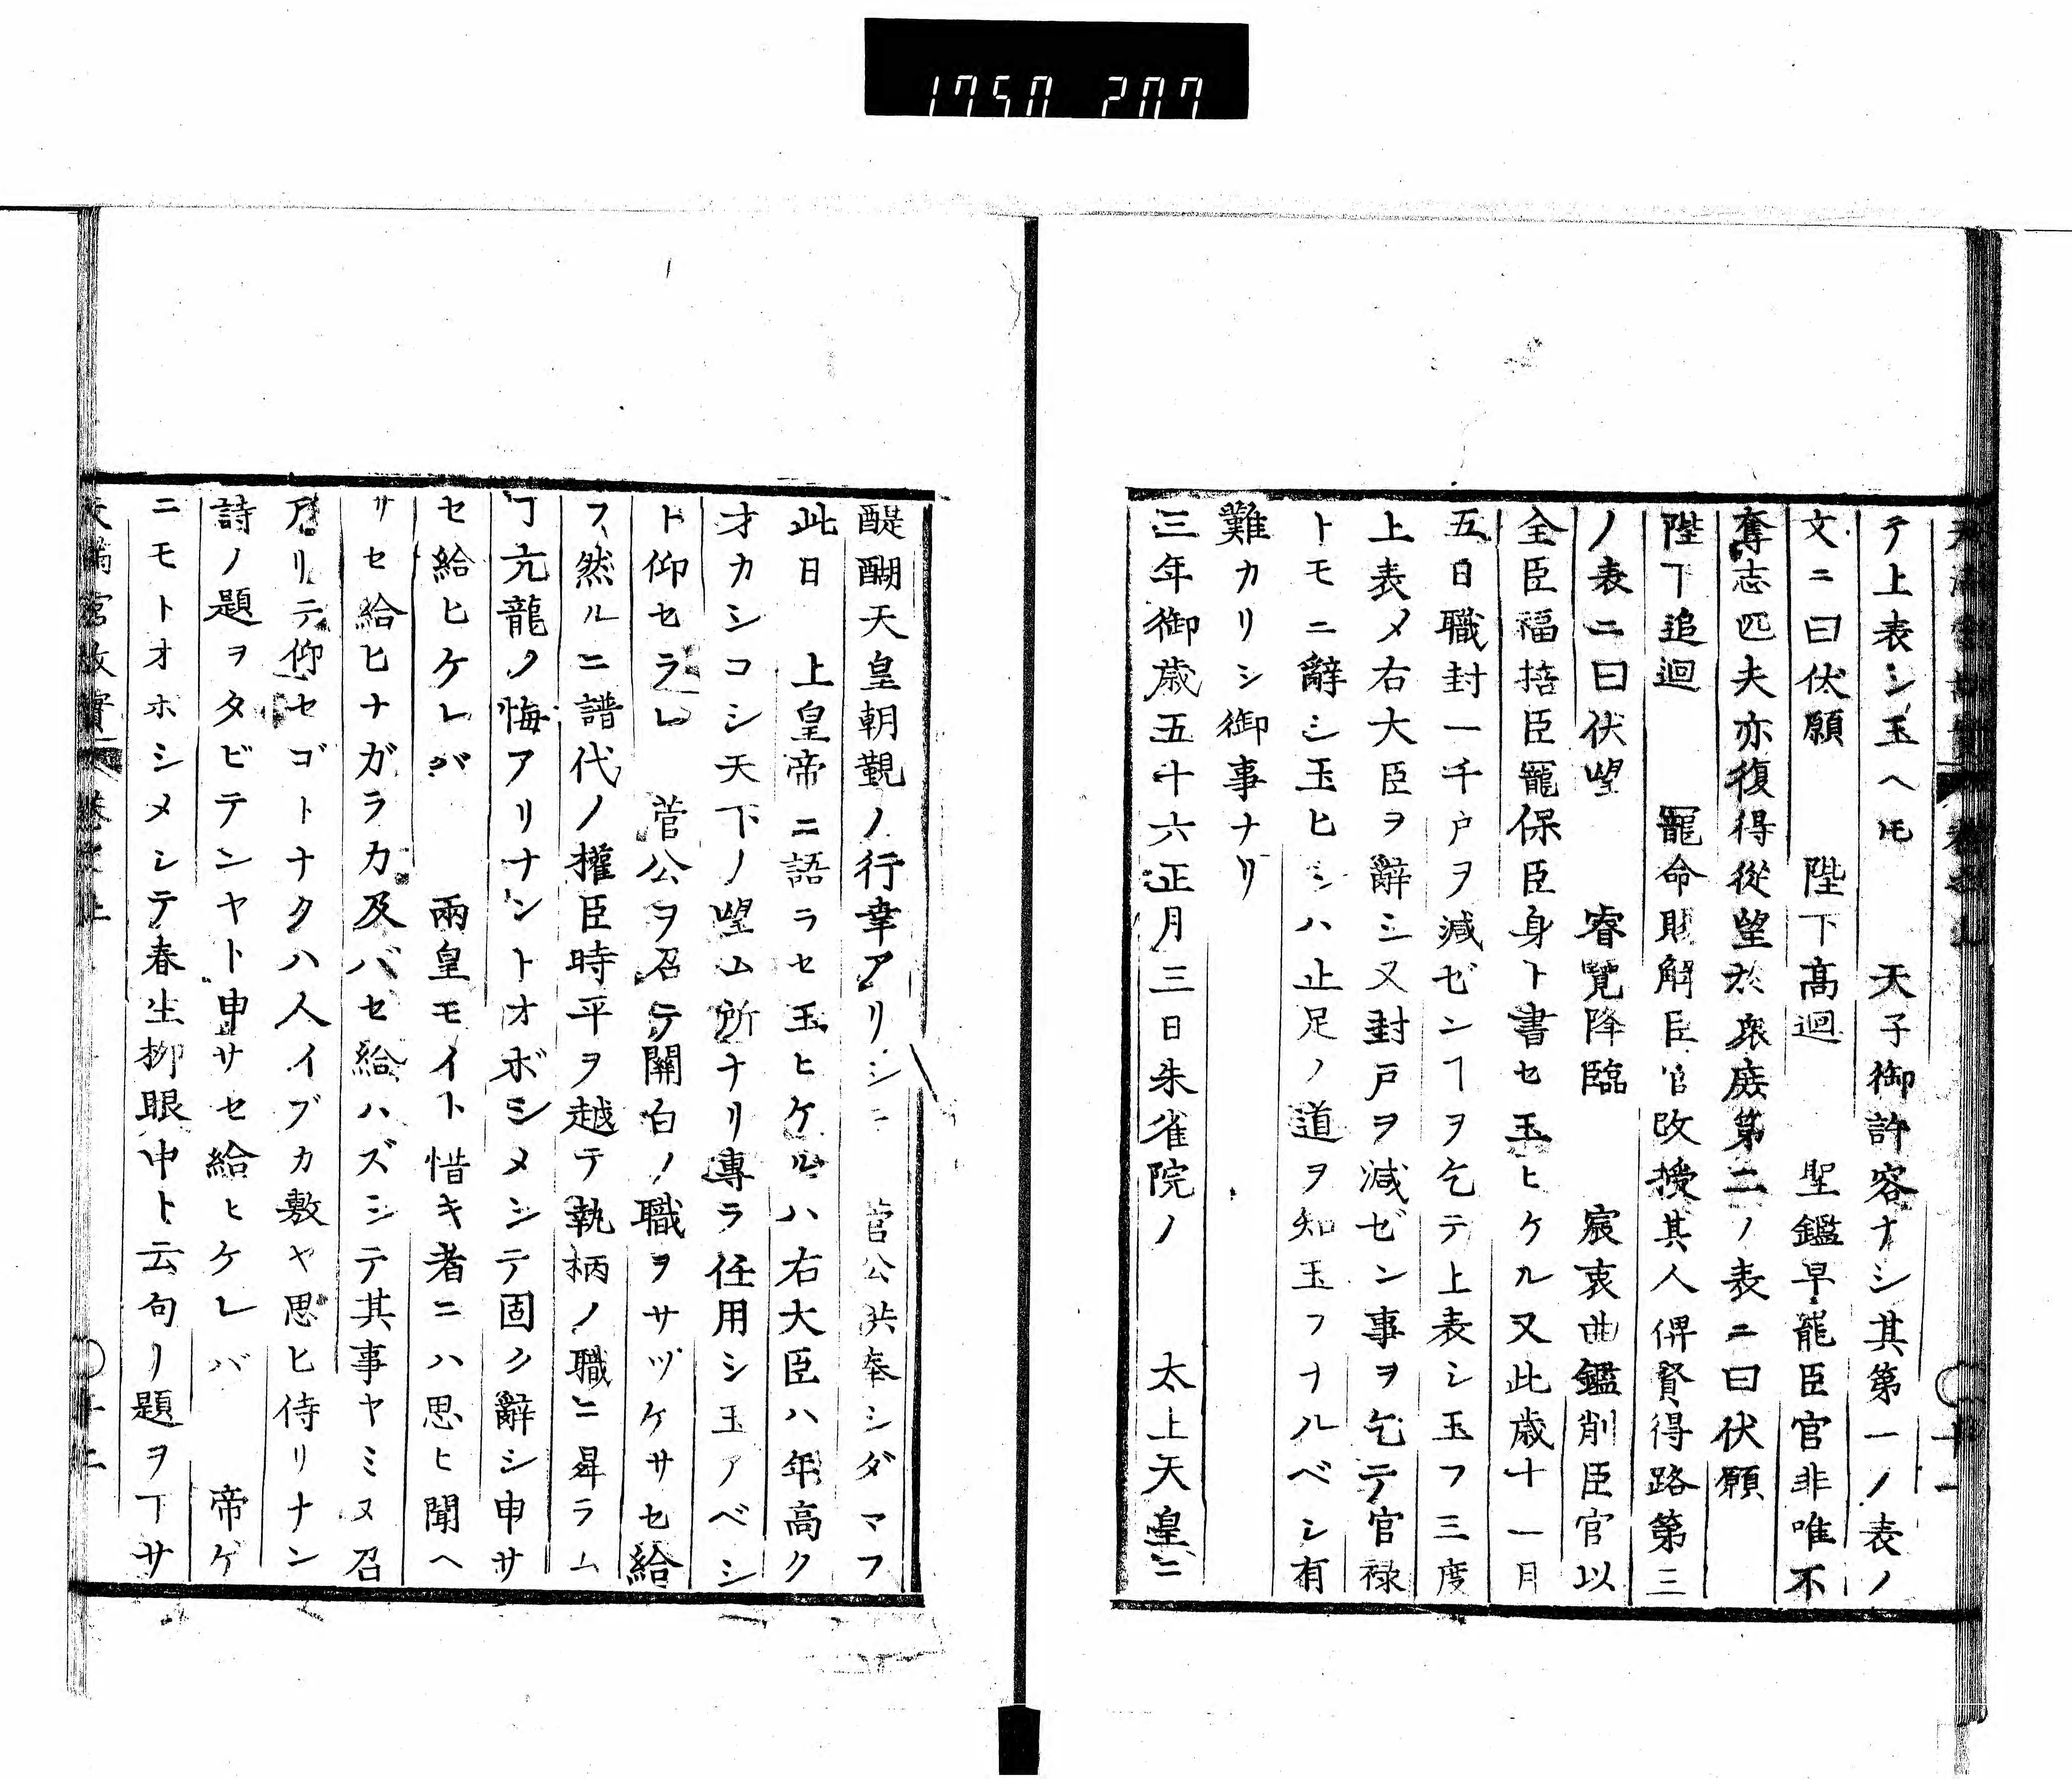 1750 207
テ上表シ玉ヘ𪜈　天子御許容ナシ其第一ノ表ノ
文ニ曰伏願　陛下高迴　聖鑑早罷臣官非唯不
奪志匹夫亦復得從望於衆庶第二ノ表ニ曰伏願
陛下追迴　寵命則解臣官改授其人俾賢得路第三
ノ表ニ曰伏望　睿覽降臨　宸衷曲鑑削臣官以
全臣福捨臣寵保臣身ト書セ玉ヒケル又此歳十一月
五日職封一千戸ヲ減ゼンヿヲ乞テ上表シ玉フ三度
上表〆右大臣ヲ辭シ又封戸ヲ減ゼン事ヲ乞テ官禄
トモニ辭シ玉ヒシハ止足ノ道ヲ知玉フナルベシ有
難カリシ御事ナリ
三年御歳五十六正月三日朱雀院ノ　太上天皇ニ
醍醐天皇朝覲ノ行幸アリシニ　菅公供奉シダマフ
此日　上皇帝ニ語ラセ玉ヒケルハ右大臣ハ年高ク
才カシコシ天下ノ望ム所ナリ專ラ任用シ玉フベシ
ト仰セラレ　菅公ヲ召テ關白ノ職ヲサヅケサセ給
フ然ルニ譜代ノ權臣時平ヲ越テ執柄ノ職ニ昇ラム
ヿ亢龍ノ悔アリナントオボシメシテ固ク辭シ申サ
セ給ヒケレバ　兩皇モイト惜キ者ニハ思ヒ聞ヘ
サセ給ヒナガラカ及バセ給ハズシテ其事ヤミヌ召
アリテ仰セゴトナクハ人イブカ敷ヤ思ヒ侍リナン
詩ノ題ヲタビテンヤト申サセ給ヒケレバ　帝ゲ
ニモトオホシメシテ春生柳眼中ト云句ノ題ヲ下サ
天滿宮故實　卷之上　十二